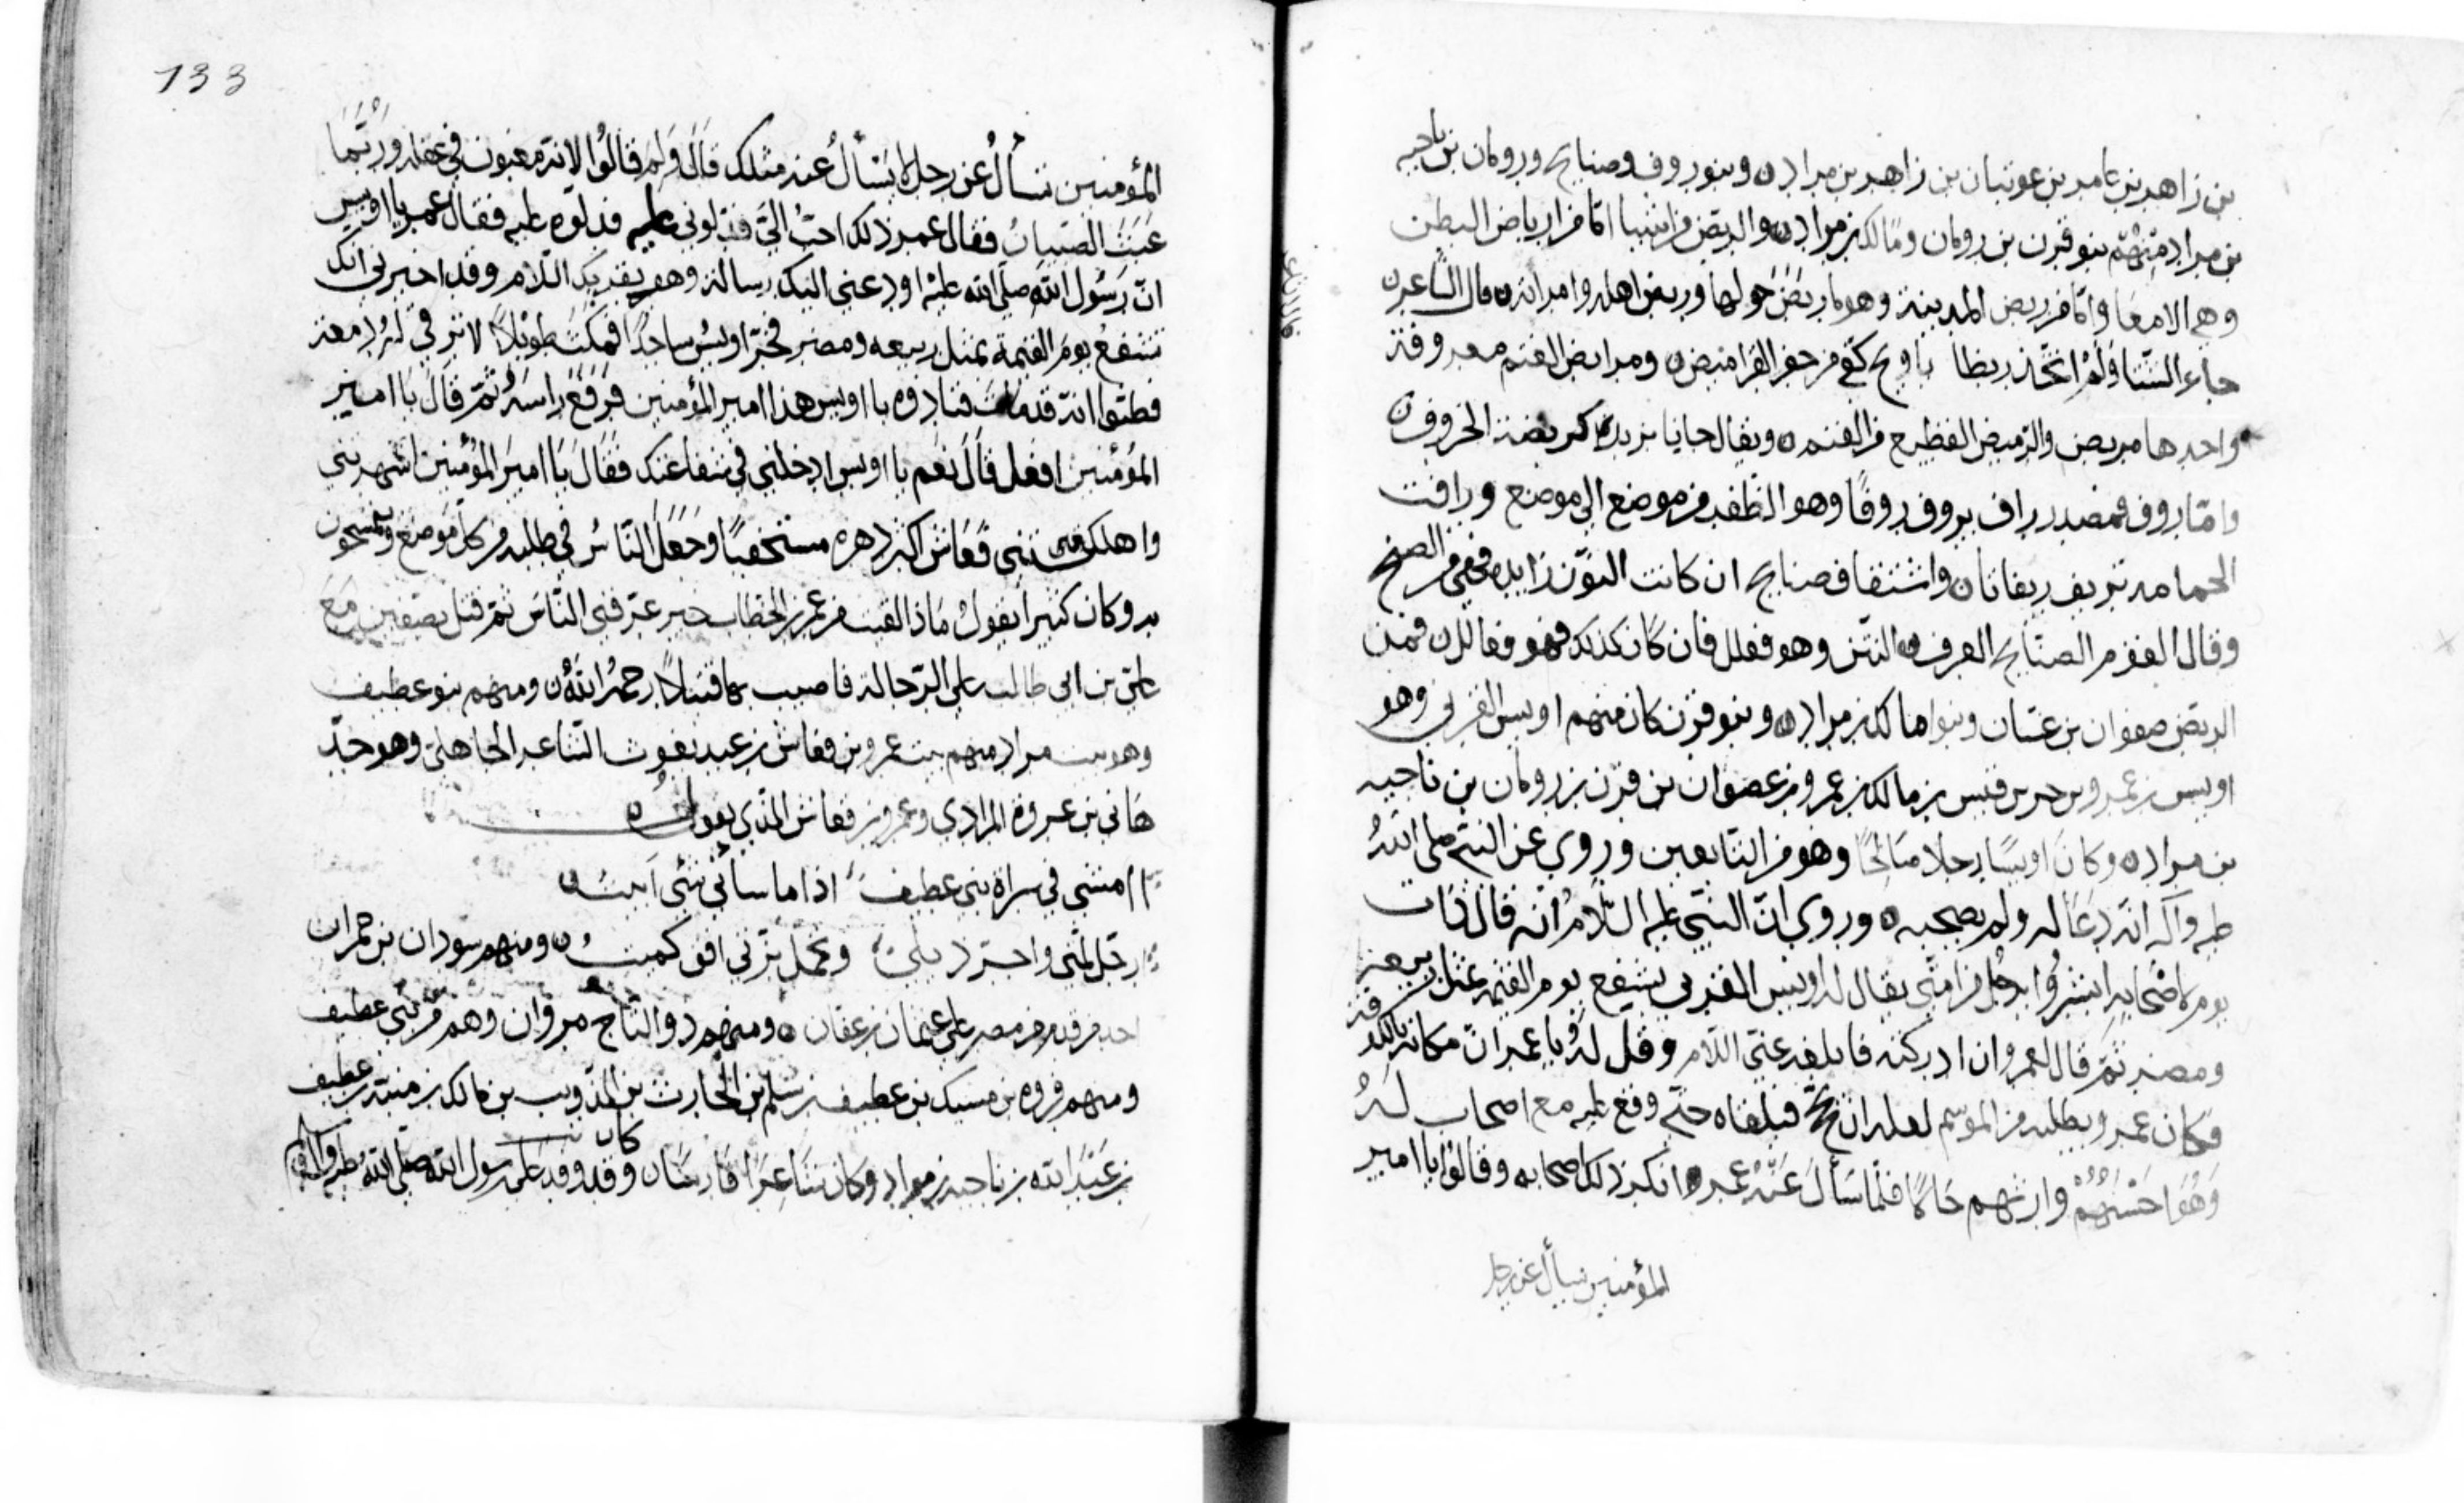 بن زاهر بن عامر بن عوثبان بن زاهر بن مراد ٥ وبنو روف وصنابح ورومان بن ناجيه
بن مراد منهم بنو قرن بن رومان ومالك بن مراد ٥ والربض اما من ارباض البطن
وهي الامعا واما من ربض المدينة وهو ما ربض حولها وربض اهله وامراته ٥ قال الشاعر ٥
جاء الشتا ولم اتخذ ربضا يا ويح كفي من حفر القراميص ٥ ومرابض الغنم معروفة
واحدها مربض والربيض القطيع من الغنم ٥ ويقال كربضة الخروف ٥
واما روف فمصدر راف يروف روفا وهو من موضع الى موضع ورافت
الحمامه تريف ريفانا ٥ واشتقاق صنابح ان كانت النون زايده فهي من الصبح
وقال القوم الصنابح العرق النتن وهو فعلل فان كان كذلك فهو فعالل ٥ فمن
الربض صفوان بن عسان وبنوا مالك بن مراد ٥ وبنو قرن كان منهم اويس القرني وهو
اويس بن عمرو بن قيس بن مالك بن عمرو بن عصوان بن قرن بن رومان بن ناجيه
بن مراد ٥ وكان اويسا رجلا صالحا وهو من التابعين وروي عن النبي صلى الله
عليه وآله انه دعا له ولم يصحبه ٥ وروي ان النبي عليه السلام انه قال ذات
يوم لاصحابه ابشروا برجل من امتي يقال له اويس القرني يشفع يوم القيمة بمثل ربيعة
ومضر ثم قال لعمر وان ادركته فابلغه عني السلام وقل له يا عمر ان مكانه بالكوفة
فكان عمر ويطلبه من الموسم لعله ان يحج فيلقاه حتى وقع عليه مع اصحاب له
وهو احسنهم وارثهم حالا فلما سأل عنه عمر انكر ذلك اصحابه وقالوا يا امير
المؤمنين نسأل عن رجل
133
المؤمنين تسأل عن رجل لا يسأل عنه مثلك قال ولم قالوا لانه مغبون في عقله وربما
عبث الصبيان فقال عمر ذلك احب الي فدلوني عليه فدلوه عليه فقال عمر يا اويس
ان رسول الله صلى الله عليه اودعني اليك رسالة وهو يقريك السلام وقد اخبرني انك
تشفع يوم القيمة بمثل ربيعه ومضر فخر اويس ساجدا فمكث طويلا لا تترقى له دمعة
فظنوا انه قد مات فنادوه يا اويس هذا امير المؤمنين فرفع راسه ثم قال يا امير
المؤمنين افعل قال نعم يا اويس ادخلني في شفاعتك فقال يا امير المؤمنين اشهرتني
واهلكتني فعاش اكثر دهره مستخفيا وجعل الناس في طلبه من كل موضع ويتمسحون
به وكان كثيرا يقول ماذا لقيت من عمر بن الخطاب حين عرفني الناس ثم قتل بصفين مع
علي بن ابي طالب على الرجالة فاصيب بها قتيلا رحمه الله ٥ ومنهم بنو عطيف
وهو بيت مراد منهم بيت عمرو بن قعاش بن عبد يغوث الشاعر الجاهلي وهو جد
هاني بن عروة المرادي وعمرو بن قعاش الذي يقول ٥
امشي في سراة بني عطيف اذا ما ساني شي ابيت ٥
ارجل لمتي واجر ذيلي وتحمل بزتي افق كميت ٥ ومنهم سودان بن حمران
احد من قدم من مصر على عثمان بن عفان ٥ ومنهم ذو التاج مروان وهم من بني عطيف
ومنهم فروه بن مسيك بن عطيف بن سلم بن الحارث بن الذويب بن مالك بن منبه بن عطيف
بن عبد الله بن ناجيه بن مراد وكان شاعرا فارسا ٥ وقد كان وفد على رسول الله صلى الله عليه وآله